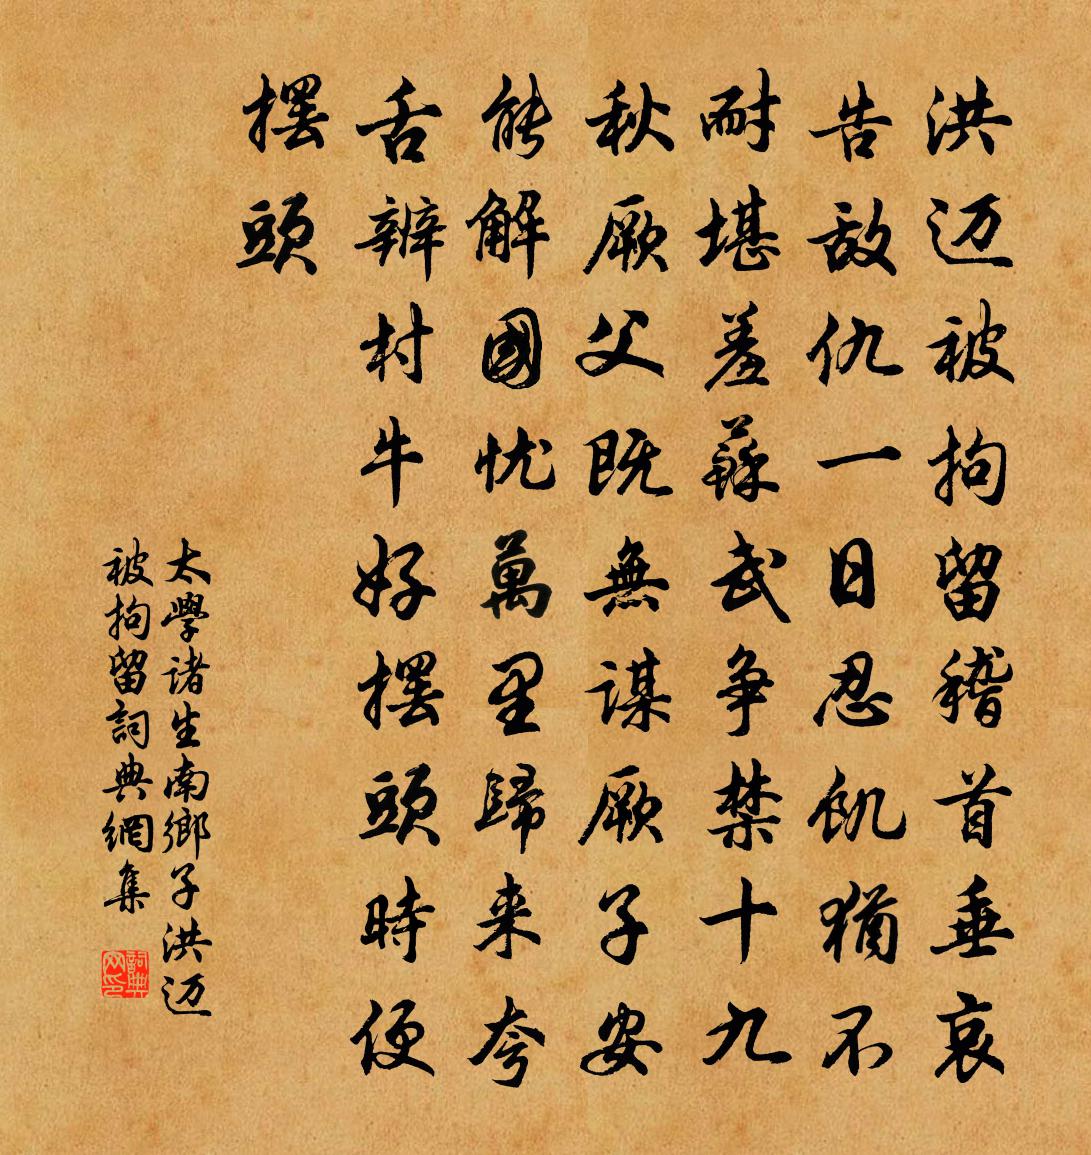 洪迈被拘留稽首垂哀
告敌仇一日忍飢猶不
耐堪羞蘇武争禁十九
秋厥父既無謀厥子安
能解國忧萬里歸来夸
舌辨村牛好摆頭時便
摆頭
太學诸生南鄉子洪迈
被拘留詞典網集
詞典网印